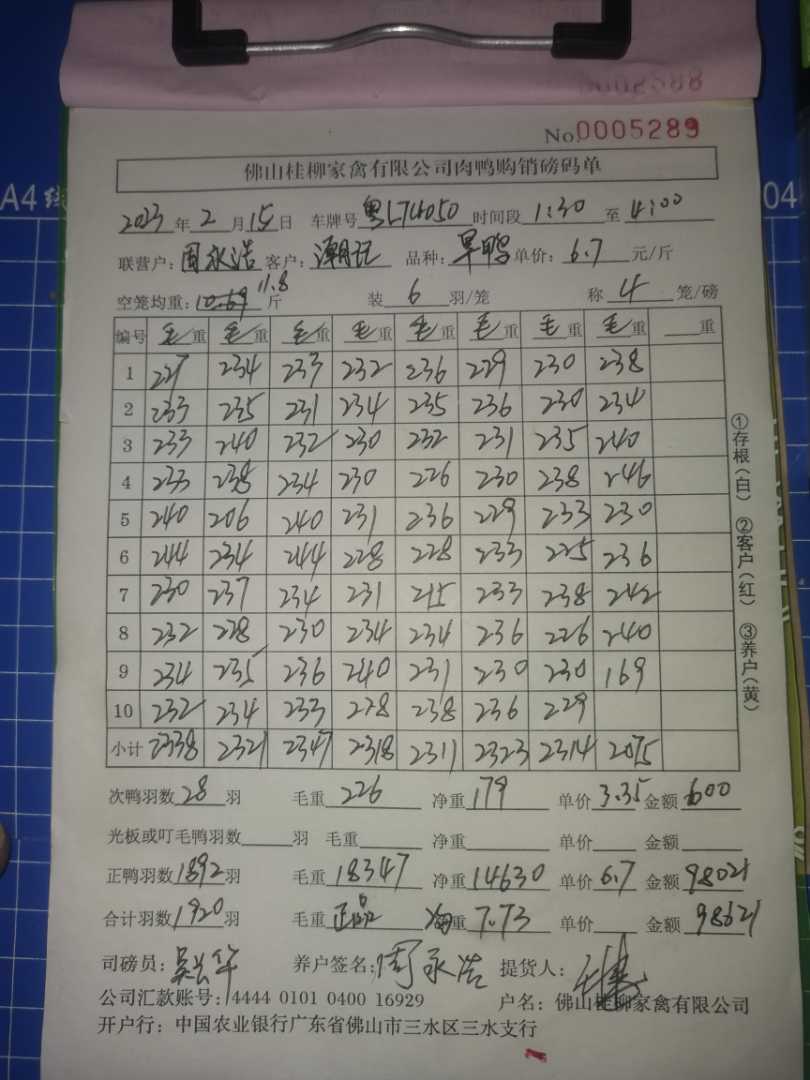 0002588
A4
No.0005289
佛山桂柳家禽有限公司肉鸭购销磅码单
2023 年 2 月 15 日 车牌号 粤L74050 时间段 1:30 至 4:00
联营户: 周永浩 客户: 潮记 品种: 旱鸭 单价: 6.7 元/斤
空笼均重: 10.69 11.8 斤 装 6 羽/笼 称 4 笼/磅
编号 毛重 毛重 毛重 毛重 毛重 毛重 毛重 毛重 重
1 227 234 233 232 236 229 230 238
2 233 235 231 234 235 236 230 234
3 233 240 232 230 232 231 235 240
4 233 238 234 230 226 230 238 246
5 240 206 240 231 236 229 233 230
6 244 234 244 228 228 233 225 236
7 230 237 234 231 215 233 238 242
8 232 228 230 234 234 236 226 240
9 234 235 236 240 231 230 230 169
10 232 234 233 228 238 236 229
小计 2338 2321 2347 2318 2311 2323 2314 2075
①存根(白) ②客户(红) ③养户(黄)
次鸭羽数 28 羽 毛重 226 净重 179 单价 3.35 金额 600
光板或叮毛鸭羽数 羽 毛重 净重 单价 金额
正鸭羽数 1892 羽 毛重 18347 净重 14630 单价 6.7 金额 98021
合计羽数 1920 羽 毛重 正品 均重 7.73 单价 金额 98621
司磅员: 吴兴华 养户签名: 周永浩 提货人:
公司汇款账号: 4444 0101 0400 16929 户名: 佛山桂柳家禽有限公司
开户行: 中国农业银行广东省佛山市三水区三水支行